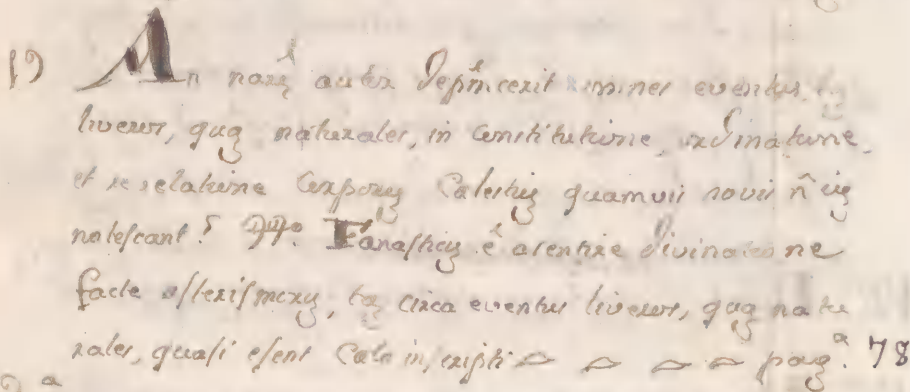 An naræ autor depinxerit omnes eventus, tã
liveros, quã naturales, in constitutione, ordinatione,
et revelatione corporũ Celestiũ quamvis novis ñ in
notescant? Fanasticũ ẽ asentire divinatione
facte asterismorũ, tã circa eventus liveros, quã natu
rales, quasi esent Celo inscripti pagª. 78